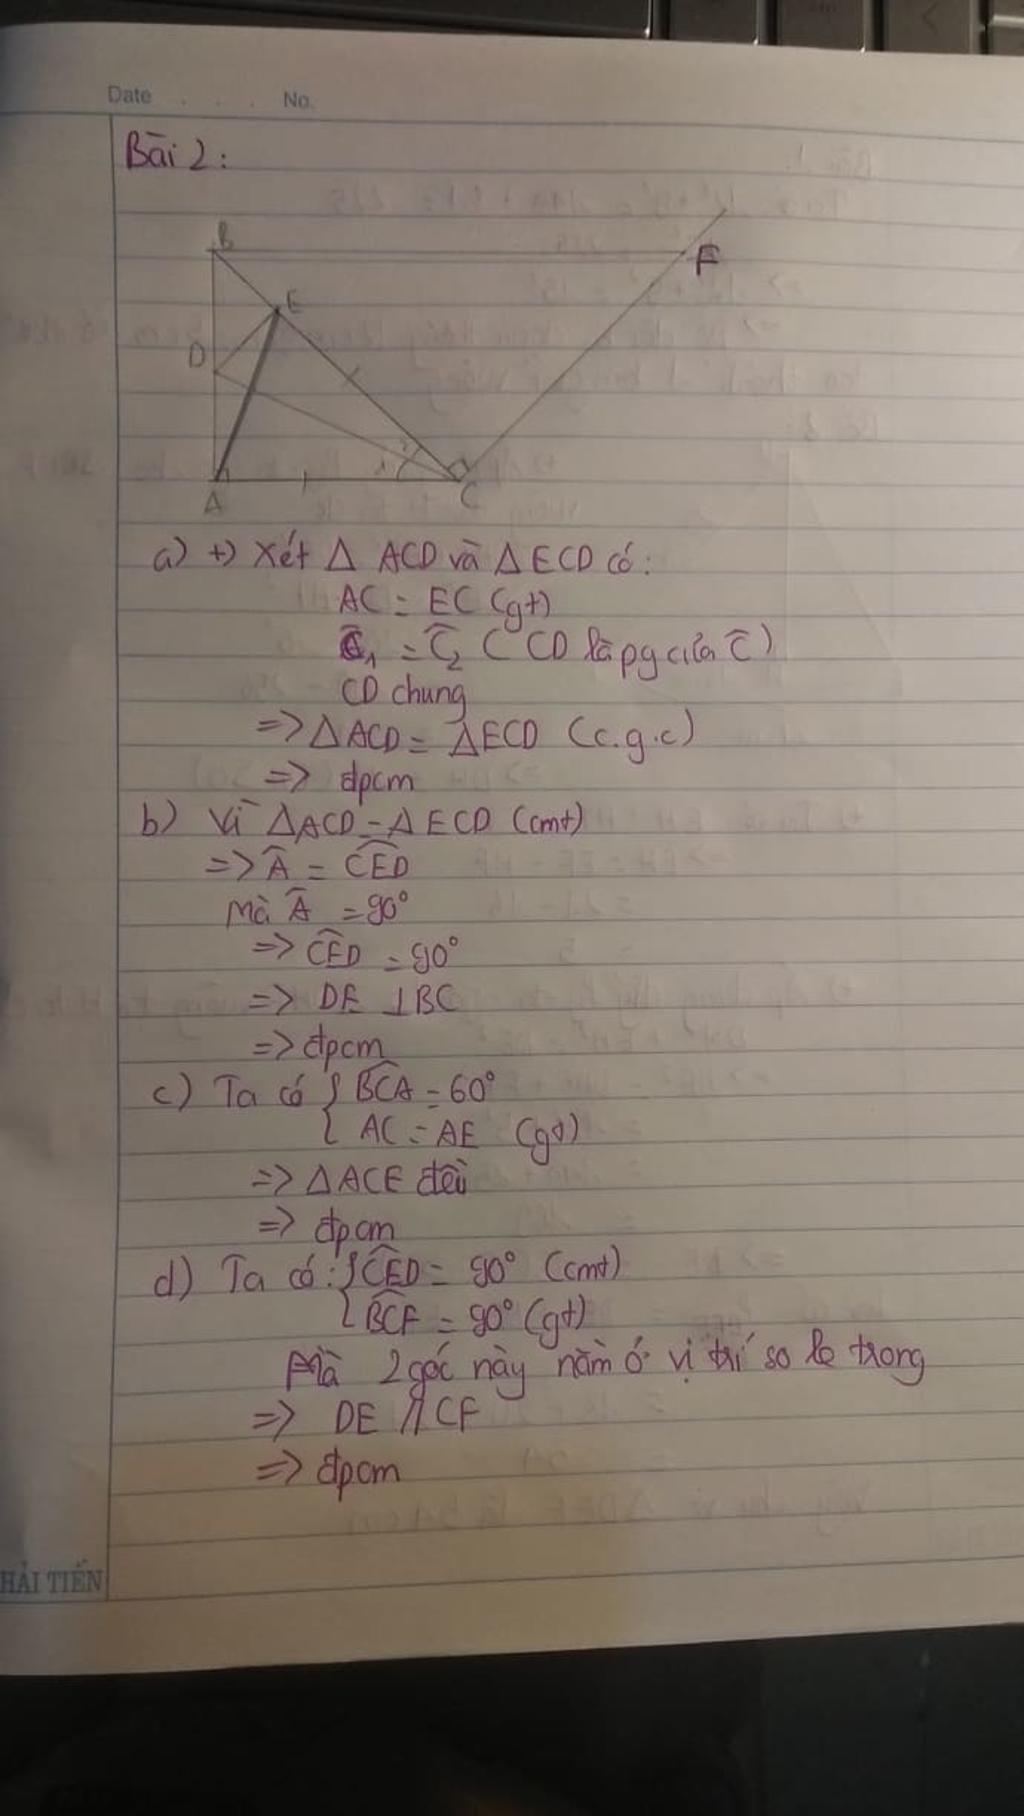 Date . . . No.
Bài 2:
B
F
E
D
A
C
a) +) Xét Δ ACD và Δ ECD có:
AC = EC (gt)
Ĉ₁ = Ĉ₂ ( CD là pg của Ĉ )
CD chung
=> Δ ACD = Δ ECD (c.g.c)
=> đpcm
b) Vì Δ ACD = Δ ECD (cmt)
=> Â = CÊD
Mà Â = 90°
=> CÊD = 90°
=> DE ⊥ BC
=> đpcm
c) Ta có { BĈA = 60°
AC = AE (gt)
=> Δ ACE đều
=> đpcm
d) Ta có : { CÊD = 90° (cmt)
BĈF = 90° (gt)
Mà 2 góc này nằm ở vị trí so le trong
=> DE // CF
=> đpcm
HẢI TIẾN